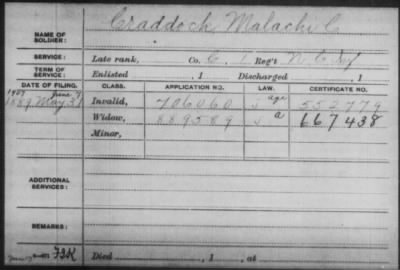 NAME OF SOLDIER: Craddock, Malachi C
SERVICE: Late rank, Co. C, 1 Reg't N.C. Inf
TERM OF SERVICE: Enlisted , 1 Discharged , 1
DATE OF FILING. CLASS. APPLICATION NO. LAW. CERTIFICATE NO.
1907 June 7
1889 May 31 Invalid, 706060 age 552779
Widow, 889589 a 667438
Minor,
ADDITIONAL SERVICES:
REMARKS:
Died , 1 , at